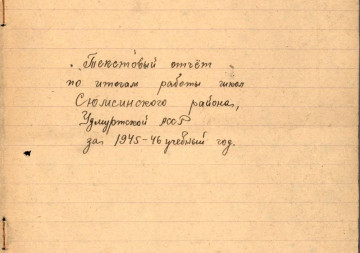 Текстовый отчёт
по итогам работы школ
Сюмсинского района,
Удмуртской АССР
за 1945-46 учебный год.